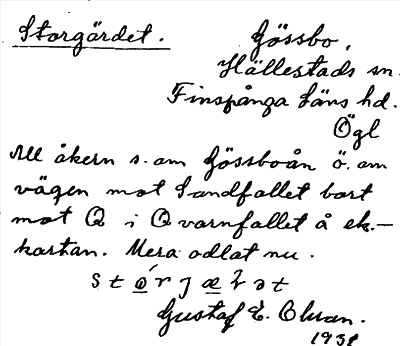 Storgärdet.
Gössbo,
Hällestads sn.
Finspånga Läns hd.
Ögl
All åkern s. om Gössboån ö. om
vägen mot Sandfallet bort
mot Q i Qvarnfallet å ek.-
kartan. Mera odlat nu.
Gustaf E.